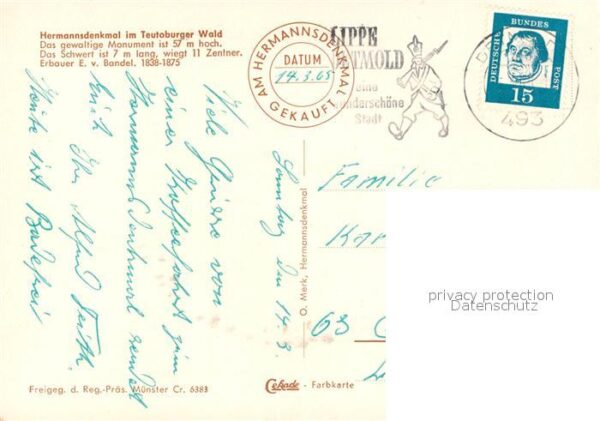 Hermannsdenkmal im Teutoburger Wald
Das gewaltige Monument ist 57 m hoch.
Das Schwert ist 7 m lang, wiegt 11 Zentner.
Erbauer E. v. Bandel. 1838-1875
AM HERMANNSDENKMAL
DATUM
14.3.65
GEKAUFT
LIPPE
DETMOLD
eine
wunderschöne
Stadt
DEUTSCHE
BUNDES
POST
15
493
Viele Grüsse von
einer Kaffeefahrt zum
Hermannsdenkmal sendet
Euch Ihr Alfred
Heute ist
Sonntag den 14.3.
O. Merk, Hermannsdenkmal
Familie
63
privacy protection
Datenschutz
Freigeg. d. Reg.-Präs. Münster Cr. 6383
Cekade - Farbkarte